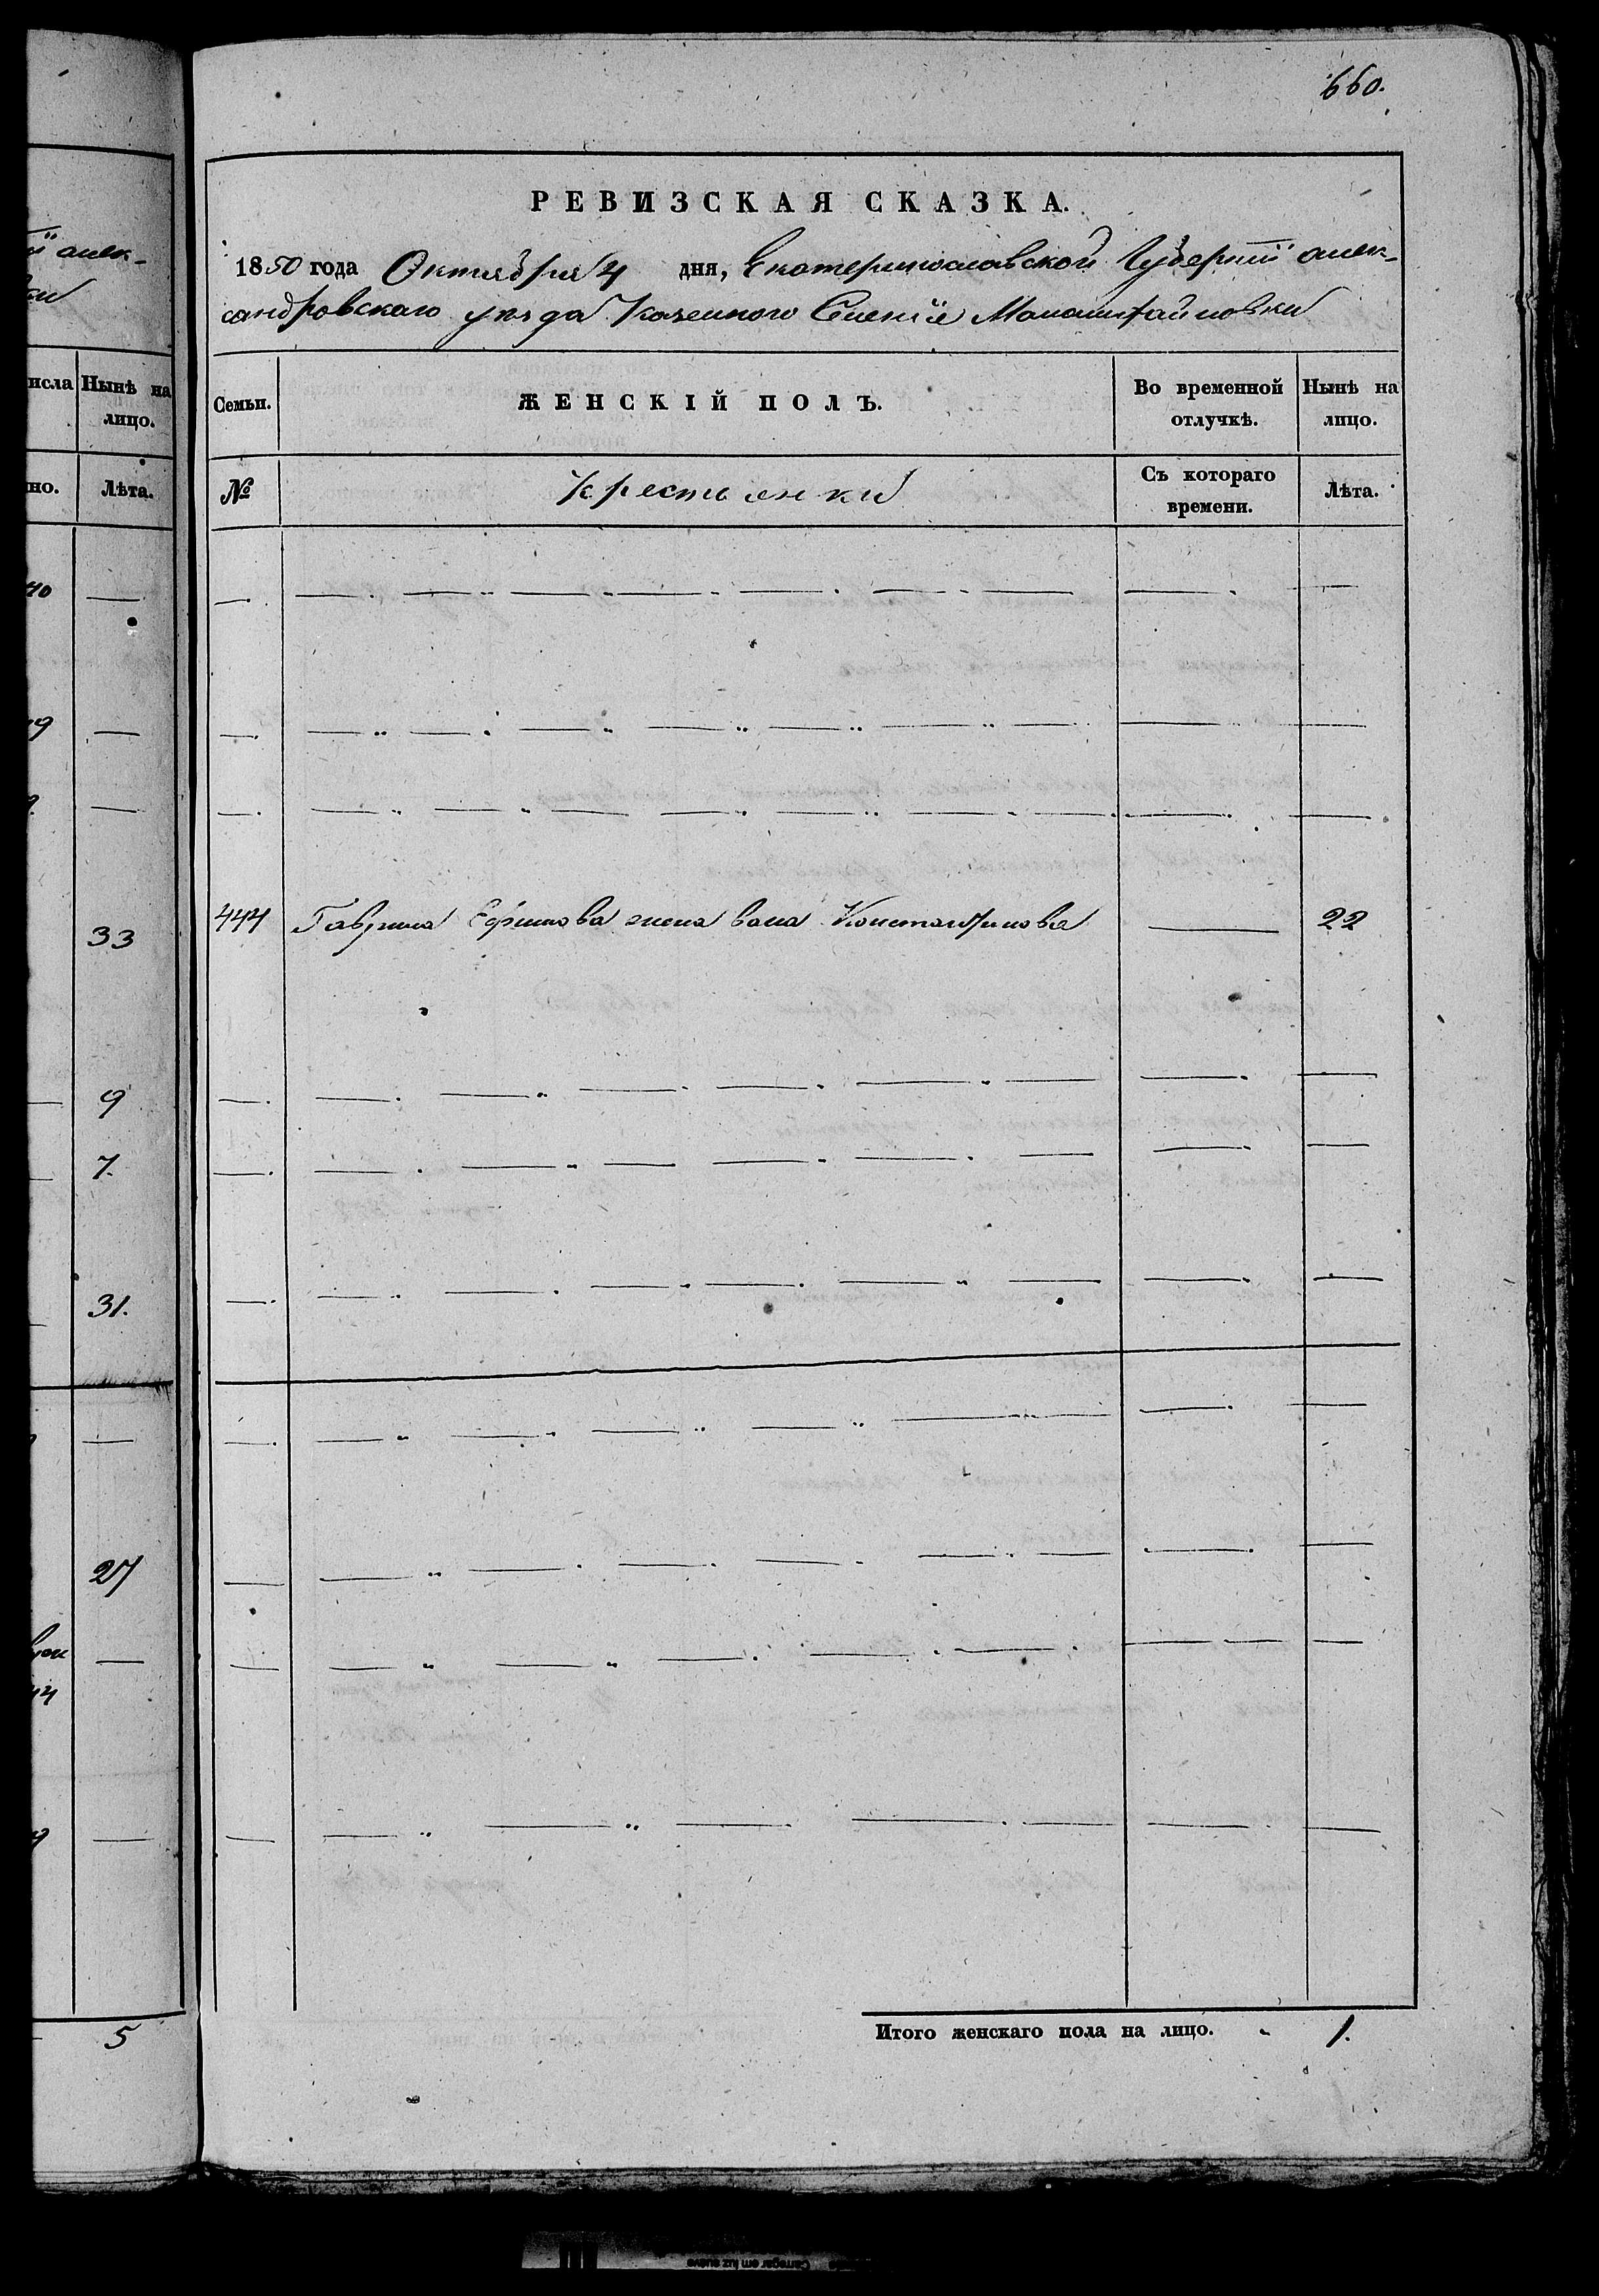 660.
РЕВИЗСКАЯ СКАЗКА.
1850 года Октября 4 дня, Екатеринославской Губерніи алек-
сандровскаго уезда Казенного Селенія
й алек-
исла
Нынѣ на
лицо.
Семьи.
ЖЕНСКІЙ ПОЛЪ.
Во временной
отлучкѣ.
Нынѣ на
лицо.
но.
Лѣта.
№
Крестьянки
Съ котораго
времени.
Лѣта.
33
444 Гаврила Ефимова жена Константинова 22
9
7.
31.
27
5
Итого женскаго пола на лицо. 1.